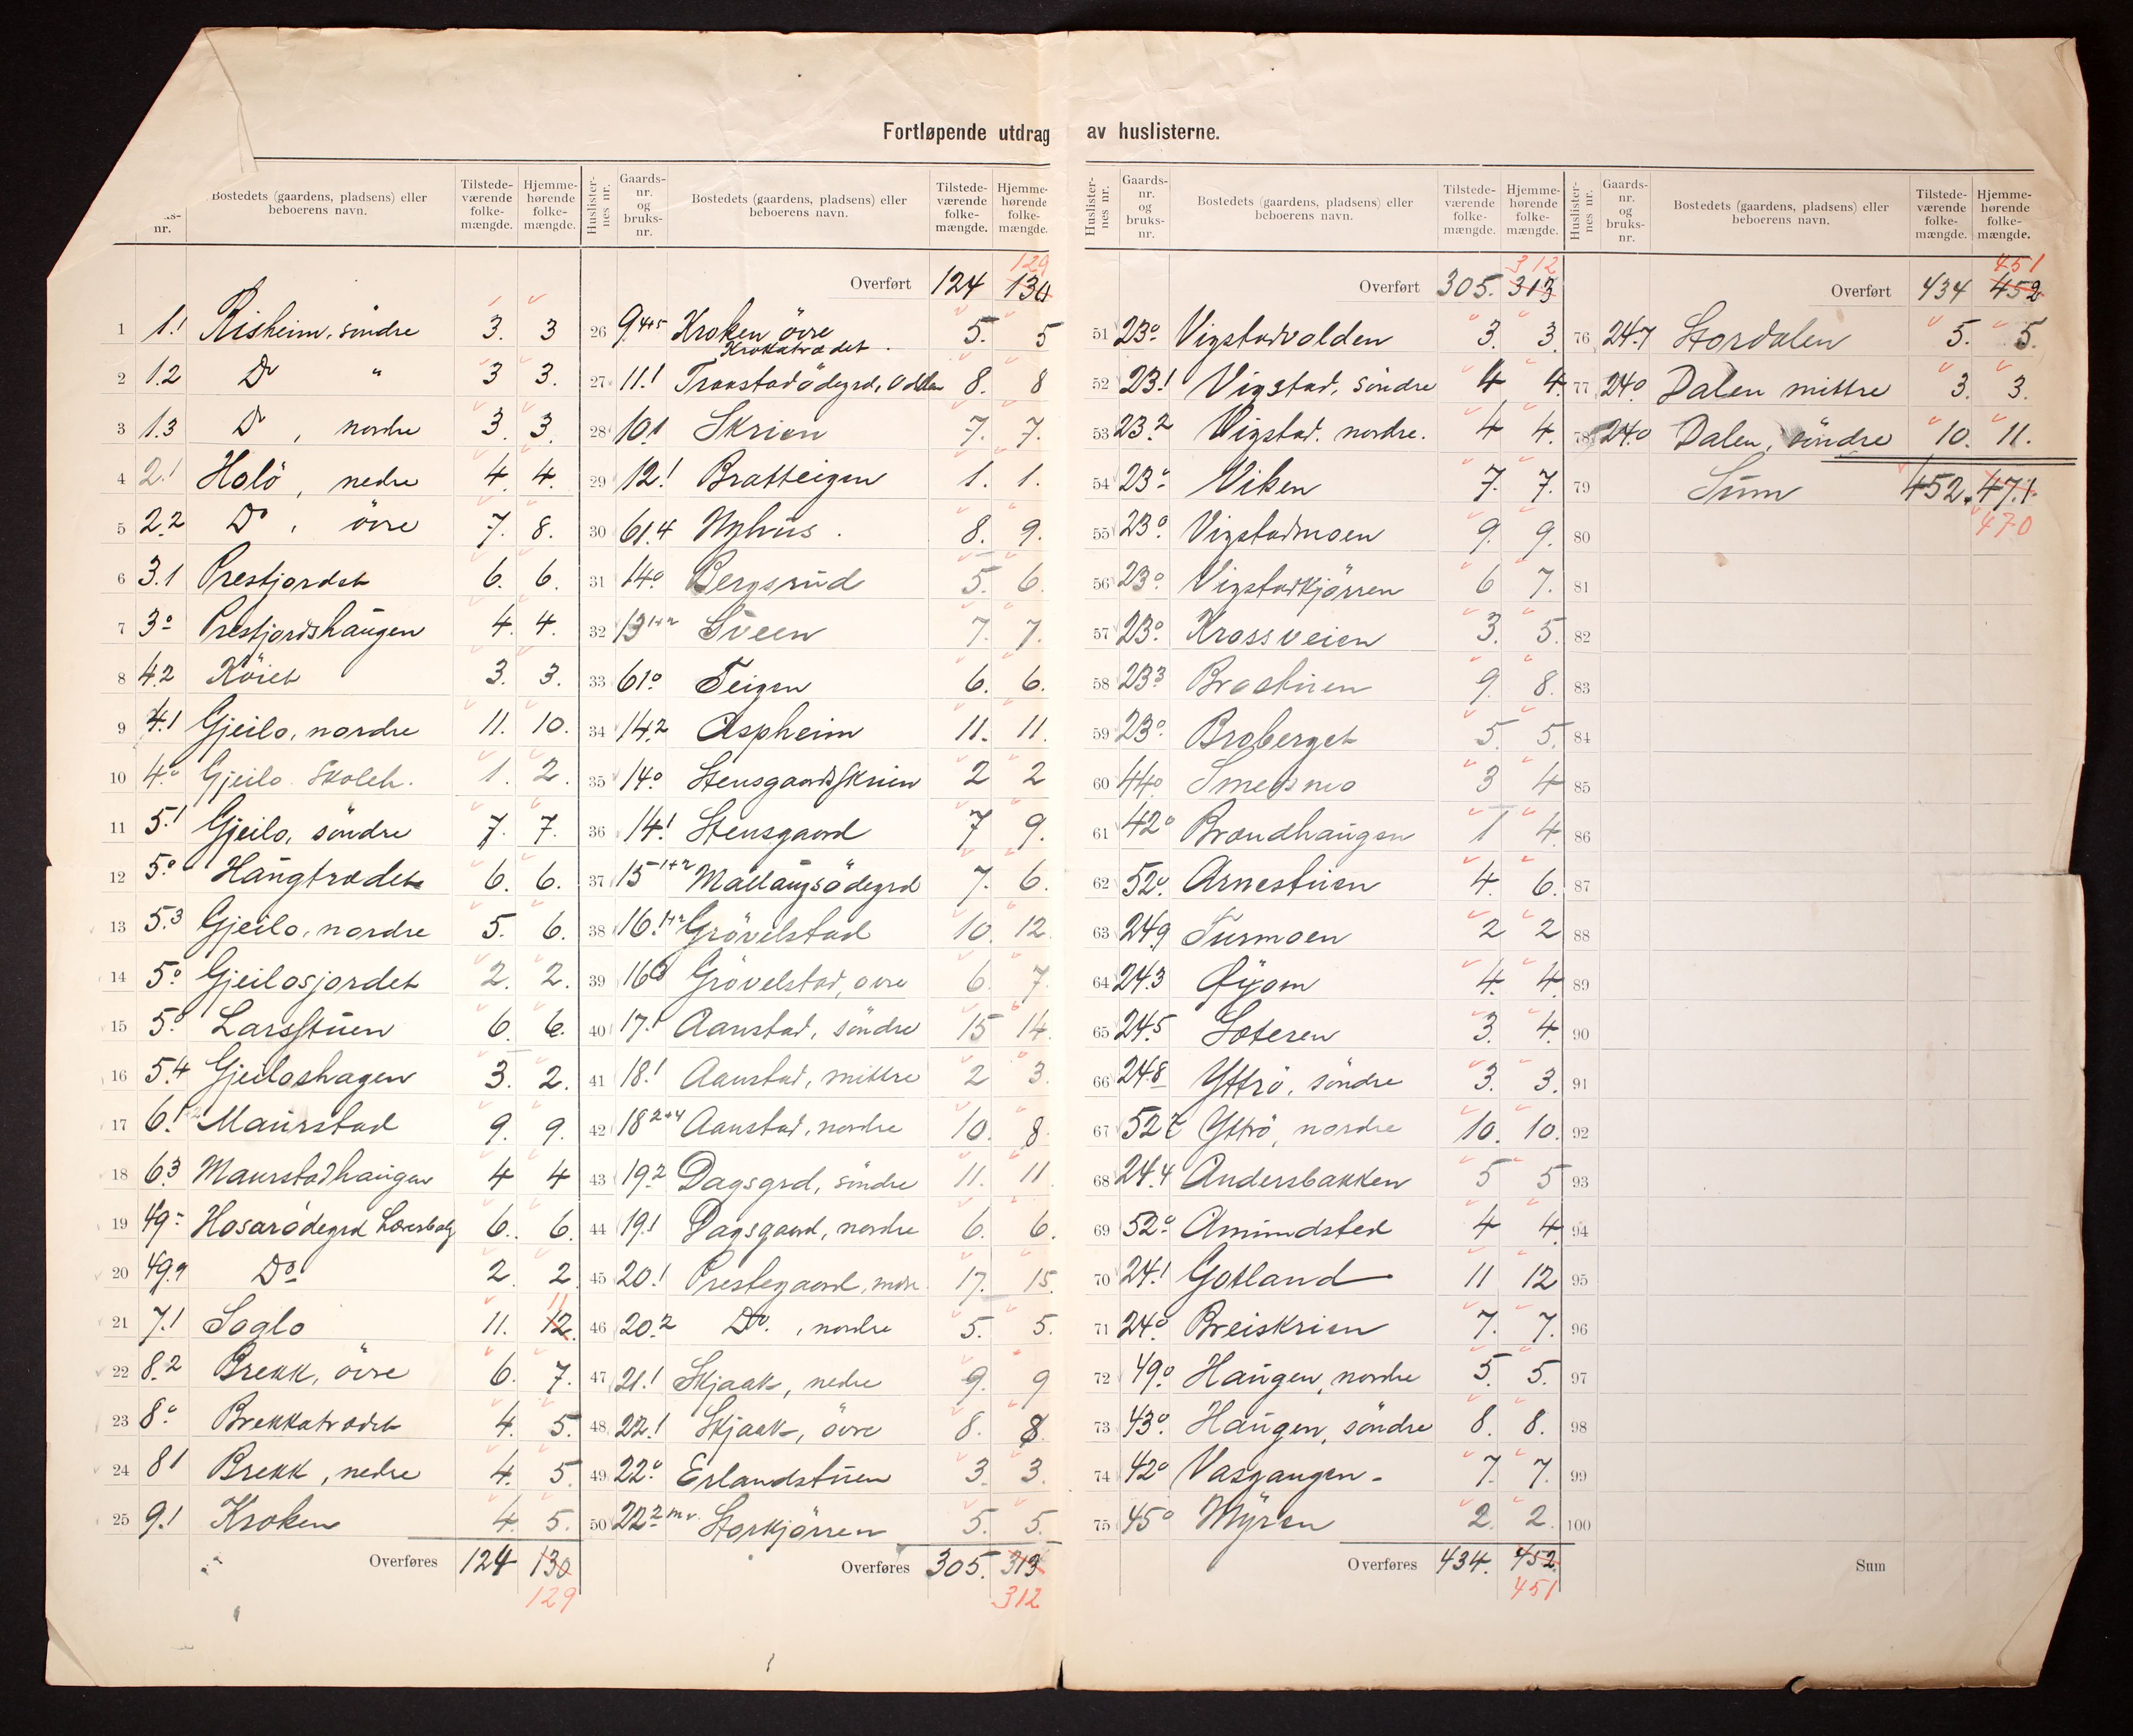 Fortløpende utdrag av huslisterne.
nr. Bostedets (gaardens, pladsens) eller beboerens navn. Tilstedeværende folkemængde. Hjemmehørende folkemængde.
1 1.1 Risheim, söndre 3. 3
2 1.2 Do " 3 3.
3 1.3 Do, nordre 3. 3.
4 2.1 Holö, nedre 4. 4.
5 2.2 Do, övre 7. 8.
6 3.1 Prestjordet 6. 6.
7 3.o Prestjordshaugen 4. 4.
8 4.2 Röiet 3. 3.
9 4.1 Gjeilo, nordre 11. 10.
10 4.o Gjeilo Skoleh. 1. 2.
11 5.1 Gjeilo, söndre 7. 7.
12 5.o Haugtrædet 6. 6.
13 5.3 Gjeilo, nordre 5. 6.
14 5.o Gjeilosjordet 2. 2.
15 5.o Larsstuen 6. 6.
16 5.4 Gjeiloshagen 3. 2.
17 6.1 Maurstad 9. 9.
18 6.3 Maurstadhaugen 4 4
19 49.- Hosarödegrd 6. 6.
20 49.9 Do 2. 2
21 7.1 Soglo 11. 12. 11
22 8.2 Brekk, övre 6. 7.
23 8.o Brekkatrædet 4. 5.
24 8.1 Brekk, nedre 4. 5.
25 9.1 Kroken 4. 5.
Overføres 124 130
129
Huslisternes nr. Gaardsnr. og bruksnr. Bostedets (gaardens, pladsens) eller beboerens navn. Tilstedeværende folkemængde. Hjemmehørende folkemængde.
129
Overført 124 130
26 9.4+5 Kroken övre 5. 5
Krokatrædet.
27 11.1 8. 8
28 10.1 Skrien 7. 7.
29 12.1 Bratteigen 1. 1.
30 61.4 Nyhus. 8. 9.
31 14.o Bergsrud 5. 6.
32 13.1+2 Sveen 7. 7.
33 61.o Teigen 6. 6.
34 14.2 Aspheim 11. 11.
35 14.o Stensgaardsskrien 2 2
36 14.1 Stensgaard 7 9.
37 15 1+2 Mallaugsödegrd 7. 6.
38 16.1+2 Grövelstad 10. 12
39 16.3 Grövelstad, övre 6. 7.
40 17.1 Aanstad, söndre 15 14
41 18.1 Aanstad, mittre 2 3.
42 18 2+4 Aanstad, nordre 10. 8
43 19.2 Dagsgrd, söndre 11. 11
44 19.1 Dagsgaard, nordre 6. 6.
45 20.1 Prestegaard, 17. 15.
46 20.2 Do., nordre 5. 5.
47 21.1 Skjaak, nedre 9. 9
48 22.1 Skjaak, övre 8. 8
49 22.o Erlandstuen 3. 3.
50 22.2 m.v. Storkjörren 5. 5.
Overføres 305. 313
312
Huslisternes nr. Gaardsnr. og bruksnr. Bostedets (gaardens, pladsens) eller beboerens navn. Tilstedeværende folkemængde. Hjemmehørende folkemængde.
312
Overført 305. 313
51 23.o Vigstadvolden 3. 3.
52 23.1 Vigstad, söndre 4 4.
53 23.2 Vigstad. nordre. 4 4.
54 23.o Viken 7. 7.
55 23.o Vigstadmoen 9. 9.
56 23.o Vigstadkjörren 6 7.
57 23.o Krossveien 3. 5.
58 23.3 Brostuen 9. 8.
59 23.o Broberget 5. 5.
60 44.o Smedsmo 3 4
61 42.o Brændhaugen 1 4.
62 52.o Arnestuen 4. 6.
63 24.9 Turmoen 2 2
64 24.3 Öyom 4. 4.
65 24.5 Loteren 3. 4.
66 24.8 Yttrö, söndre 3. 3.
67 52.2 Yttrö, nordre 10. 10.
68 24.4 Andersbakken 5 5
69 52.o Amundsted 4 4
70 24.1 Gotland 11 12
71 24.o Breiskrien 7. 7.
72 49.o Haugen, nordre 5. 5.
73 43.o Haugen, söndre 8. 8.
74 42.o Vasgangen- 7. 7.
75 45.o Myren 2. 2.
Overføres 434. 452.
451
Huslisternes nr. Gaardsnr. og bruksnr. Bostedets (gaardens, pladsens) eller beboerens navn. Tilstedeværende folkemængde. Hjemmehørende folkemængde.
451
Overført 434 452
76 24.7 Stordalen 5. 5.
77 24.o Dalen mittre 3. 3.
78 24.o Dalen, söndre 10. 11.
79 Sum 452. 471.
470
80
81
82
83
84
85
86
87
88
89
90
91
92
93
94
95
96
97
98
99
100
Sum